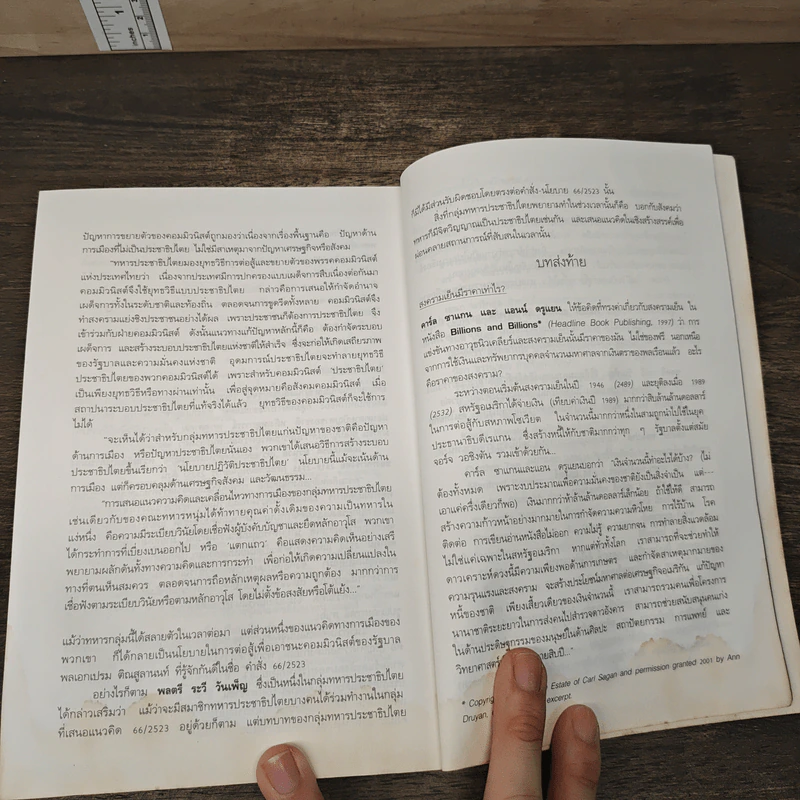 ปัญหาการขยายตัวของคอมมิวนิสต์ถูกมองว่าเนื่องจากเรื่องพื้นฐานคือ ปัญหาด้าน
การเมืองที่ไม่เป็นประชาธิปไตย ไม่ใช่มีสาเหตุมาจากปัญหาเศรษฐกิจหรือสังคม
"ทหารประชาธิปไตยมองยุทธวิธีการต่อสู้และขยายตัวของพรรคคอมมิวนิสต์
แห่งประเทศไทยว่า เนื่องจากประเทศมีการปกครองแบบเผด็จการสืบเนื่องต่อกันมา
คอมมิวนิสต์จึงใช้ยุทธวิธีแบบประชาธิปไตย กล่าวคือการเสนอให้กำจัดอำนาจ
เผด็จการทั้งในระดับชาติและท้องถิ่น ตลอดจนการขูดรีดทั้งหลาย คอมมิวนิสต์จึง
ทำสงครามแย่งชิงประชาชนอย่างได้ผล เพราะประชาชนก็ต้องการประชาธิปไตย จึง
เข้าร่วมกับฝ่ายคอมมิวนิสต์ ดังนั้นแนวทางแก้ปัญหาหลักนี้ก็คือ ต้องกำจัดระบอบ
เผด็จการ และสร้างระบอบประชาธิปไตยแห่งชาติให้สำเร็จ ซึ่งจะก่อให้เกิดเสถียรภาพ
ของรัฐบาลและความมั่นคงแห่งชาติ อุดมการณ์ประชาธิปไตยจะทำลายยุทธวิธี
ประชาธิปไตยของพวกคอมมิวนิสต์ได้ เพราะสำหรับคอมมิวนิสต์ 'ประชาธิปไตย'
เป็นเพียงยุทธวิธีหรือทางผ่านเท่านั้น เพื่อสู่จุดหมายคือสังคมคอมมิวนิสต์ เมื่อ
สถาปนาระบอบประชาธิปไตยที่แท้จริงได้แล้ว ยุทธวิธีของคอมมิวนิสต์ก็จะใช้การ
ไม่ได้
"จะเห็นได้ว่าสำหรับกลุ่มทหารประชาธิปไตยแก่นปัญหาของชาติคือปัญหา
ด้านการเมือง หรือปัญหาประชาธิปไตยนั่นเอง พวกเขาได้เสนอวิธีการสร้างระบอบ
ประชาธิปไตยขึ้นเรียกว่า 'นโยบายปฏิวัติประชาธิปไตย' นโยบายนี้แม้จะเน้นด้าน
การเมือง แต่ก็ครอบคลุมด้านเศรษฐกิจสังคม และวัฒนธรรม...
"การเสนอแนวความคิดและเคลื่อนไหวทางการเมืองของกลุ่มทหารประชาธิปไตย
เช่นเดียวกับของคณะทหารหนุ่มได้ท้าทายคุณค่าดั้งเดิมของความเป็นทหารใน
แง่หนึ่ง คือความมีระเบียบวินัยโดยเชื่อฟังผู้บังคับบัญชาและยึดหลักอาวุโส พวกเขา
ได้กระทำการที่เบี่ยงเบนออกไป หรือ 'แตกแถว' คือแสดงความคิดเห็นอย่างเสรี
พยายามผลักดันทั้งทางความคิดและการกระทำ เพื่อก่อให้เกิดความเปลี่ยนแปลงใน
ทางที่ตนเห็นสมควร ตลอดจนการถือหลักเหตุผลหรือความถูกต้อง มากกว่าการ
เชื่อฟังตามระเบียบวินัยหรือตามหลักอาวุโส โดยไม่ตั้งข้อสงสัยหรือโต้แย้ง..."
แม้ว่าทหารกลุ่มนี้ได้สลายตัวในเวลาต่อมา แต่ส่วนหนึ่งของแนวคิดทางการเมืองของ
พวกเขา ก็ได้กลายเป็นนโยบายในการต่อสู้เพื่อเอาชนะคอมมิวนิสต์ของรัฐบาล
พลเอกเปรม ติณสูลานนท์ ที่รู้จักกันดีในชื่อ คำสั่ง 66/2523
อย่างไรก็ตาม พลตรี ระวี วันเพ็ญ ซึ่งเป็นหนึ่งในกลุ่มทหารประชาธิปไตย
ได้กล่าวเสริมว่า แม้ว่าจะมีสมาชิกทหารประชาธิปไตยบางคนได้ร่วมทำงานในกลุ่ม
ที่เสนอแนวคิด 66/2523 อยู่ด้วยก็ตาม แต่บทบาทของกลุ่มทหารประชาธิปไตย
ก็มิได้มีส่วนรับผิดชอบโดยตรงต่อคำสั่ง-นโยบาย 66/2523 นั้น
สิ่งที่กลุ่มทหารประชาธิปไตยพยายามทำในช่วงเวลานั้นก็คือ บอกกับสังคมว่า
ทหารก็มีจิตวิญญาณเป็นประชาธิปไตยเช่นกัน และเสนอแนวคิดในเชิงสร้างสรรค์เพื่อ
ผ่อนคลายสถานการณ์ที่สับสนในเวลานั้น
บทส่งท้าย
สงครามเย็นมีราคาเท่าไร?
คาร์ล ซาแกน และ แอนน์ ดรูแยน ให้ข้อคิดที่ทรงค่าเกี่ยวกับสงครามเย็น ใน
หนังสือ Billions and Billions* (Headline Book Publishing, 1997) ว่า การ
แข่งขันทางอาวุธนิวเคลียร์และสงครามเย็นนั้นมีราคาของมัน ไม่ใช่ของฟรี นอกเหนือ
จากการใช้เงินและทรัพยากรบุคคลจำนวนมหาศาลจากเงินตราของพลเรือนแล้ว อะไร
คือราคาของสงคราม?
ระหว่างตอนเริ่มต้นสงครามเย็นในปี 1946 (2489) และยุติลงเมื่อ 1989
(2532) สหรัฐอเมริกาได้จ่ายเงิน (เทียบค่าเงินปี 1989) มากกว่าสิบล้านล้านดอลลาร์
ในการต่อสู้กับสหภาพโซเวียต ในจำนวนนี้มากกว่าหนึ่งในสามถูกนำไปใช้ในยุค
ประธานาธิบดีเรแกน ซึ่งสร้างหนี้ให้กับชาติมากกว่าทุก ๆ รัฐบาลตั้งแต่สมัย
จอร์จ วอชิงตัน รวมเข้าด้วยกัน...
คาร์ล ซาแกนและแอนน์ ดรูแยนบอกว่า "เงินจำนวนนี้ทำอะไรได้บ้าง? (ไม่
ต้องทั้งหมด เพราะงบประมาณเพื่อความมั่นคงของชาติยังเป็นสิ่งจำเป็น แต่---
เอาแค่ครึ่งเดียวก็พอ) เงินมากกว่าห้าล้านล้านดอลลาร์เล็กน้อย ถ้าใช้ให้ดี สามารถ
สร้างความก้าวหน้าอย่างมากมายในการกำจัดความความหิวโหย การไร้บ้าน โรค
ติดต่อ การเขียนอ่านหนังสือไม่ออก ความไม่รู้ ความยากจน การทำลายสิ่งแวดล้อม
ไม่ใช่แค่เฉพาะในสหรัฐอเมริกา หากแต่ทั่วทั้งโลก เราสามารถที่จะช่วยทำให้
ดาวเคราะห์ดวงนี้มีความเพียงพอด้านการเกษตร และกำจัดสาเหตุมากมายของ
ความรุนแรงและสงคราม จะสร้างประโยชน์มหาศาลต่อเศรษฐกิจอเมริกัน แก้ปัญหา
หนี้ของชาติ เพียงเสี้ยวเดียวของเงินจำนวนนี้ เราสามารถรวมคนเพื่อโครงการ
นานาชาติระยะยาวในการส่งคนไปสำรวจดาวอังคาร สามารถช่วยสนับสนุนคนเก่ง
ในด้านประดิษฐกรรมของมนุษย์ในด้านศิลปะ สถาปัตยกรรม การแพทย์ และ
วิทยาศาสตร์ ายสิบปี..."
* Copyrig Estate of Carl Sagan and permission granted 2001 by Ann
Druyan. excerpt.